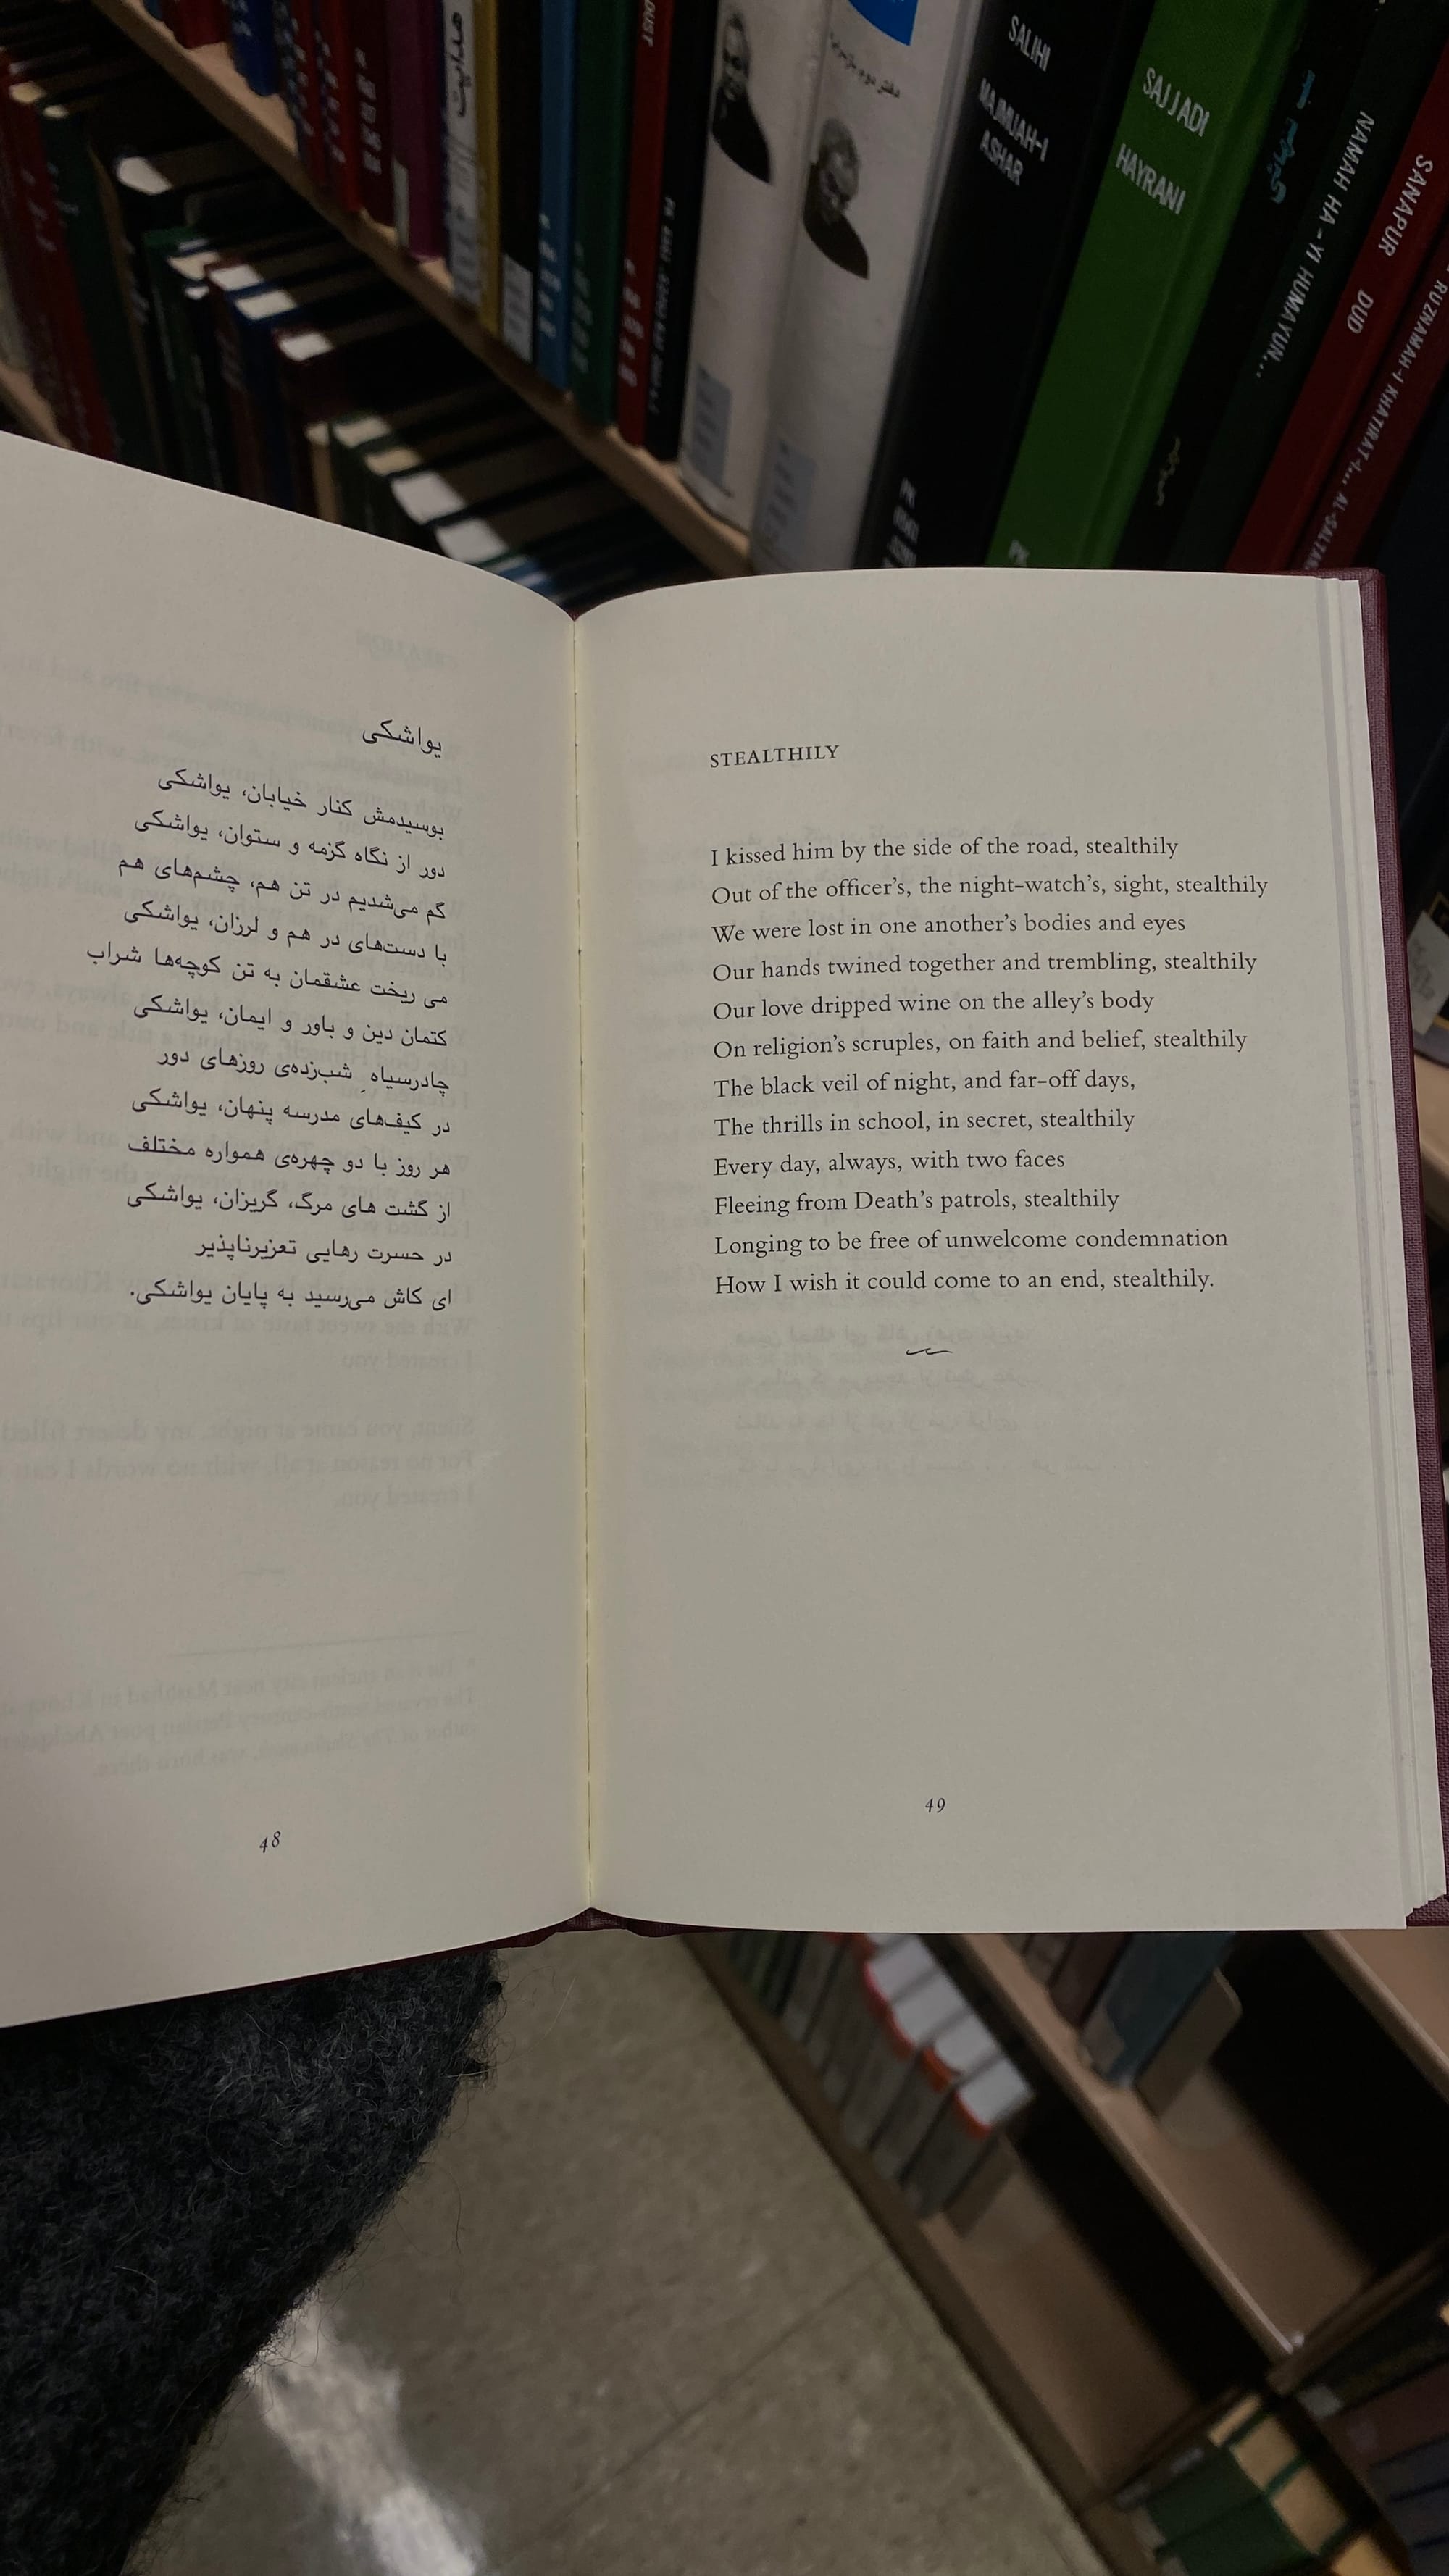 هدایت
DUST
SALIHI
MAJMUAH-I
ASHAR
SAJJADI
HAYRANI
NAMAH HA - YI HUMAYUN...
SANAPUR
DUD
RUZNAMAH-I KHATIRAT-I...
PK
PK
یواشکی
بوسیدمش کنار خیابان، یواشکی
دور از نگاه گزمه و ستوان، یواشکی
گم می‌شدیم در تن هم، چشم‌های هم
با دست‌های در هم و لرزان، یواشکی
می ریخت عشقمان به تن کوچه‌ها شراب
کتمان دین و باور و ایمان، یواشکی
چادرسیاهِ شب‌زده‌ی روزهای دور
در کیف‌های مدرسه پنهان، یواشکی
هر روز با دو چهره‌ی همواره مختلف
از گشت های مرگ، گریزان، یواشکی
در حسرت رهایی تعزیرناپذیر
ای کاش می‌رسید به پایان یواشکی.
48
STEALTHILY
I kissed him by the side of the road, stealthily
Out of the officer’s, the night-watch’s, sight, stealthily
We were lost in one another’s bodies and eyes
Our hands twined together and trembling, stealthily
Our love dripped wine on the alley’s body
On religion’s scruples, on faith and belief, stealthily
The black veil of night, and far-off days,
The thrills in school, in secret, stealthily
Every day, always, with two faces
Fleeing from Death’s patrols, stealthily
Longing to be free of unwelcome condemnation
How I wish it could come to an end, stealthily.
49